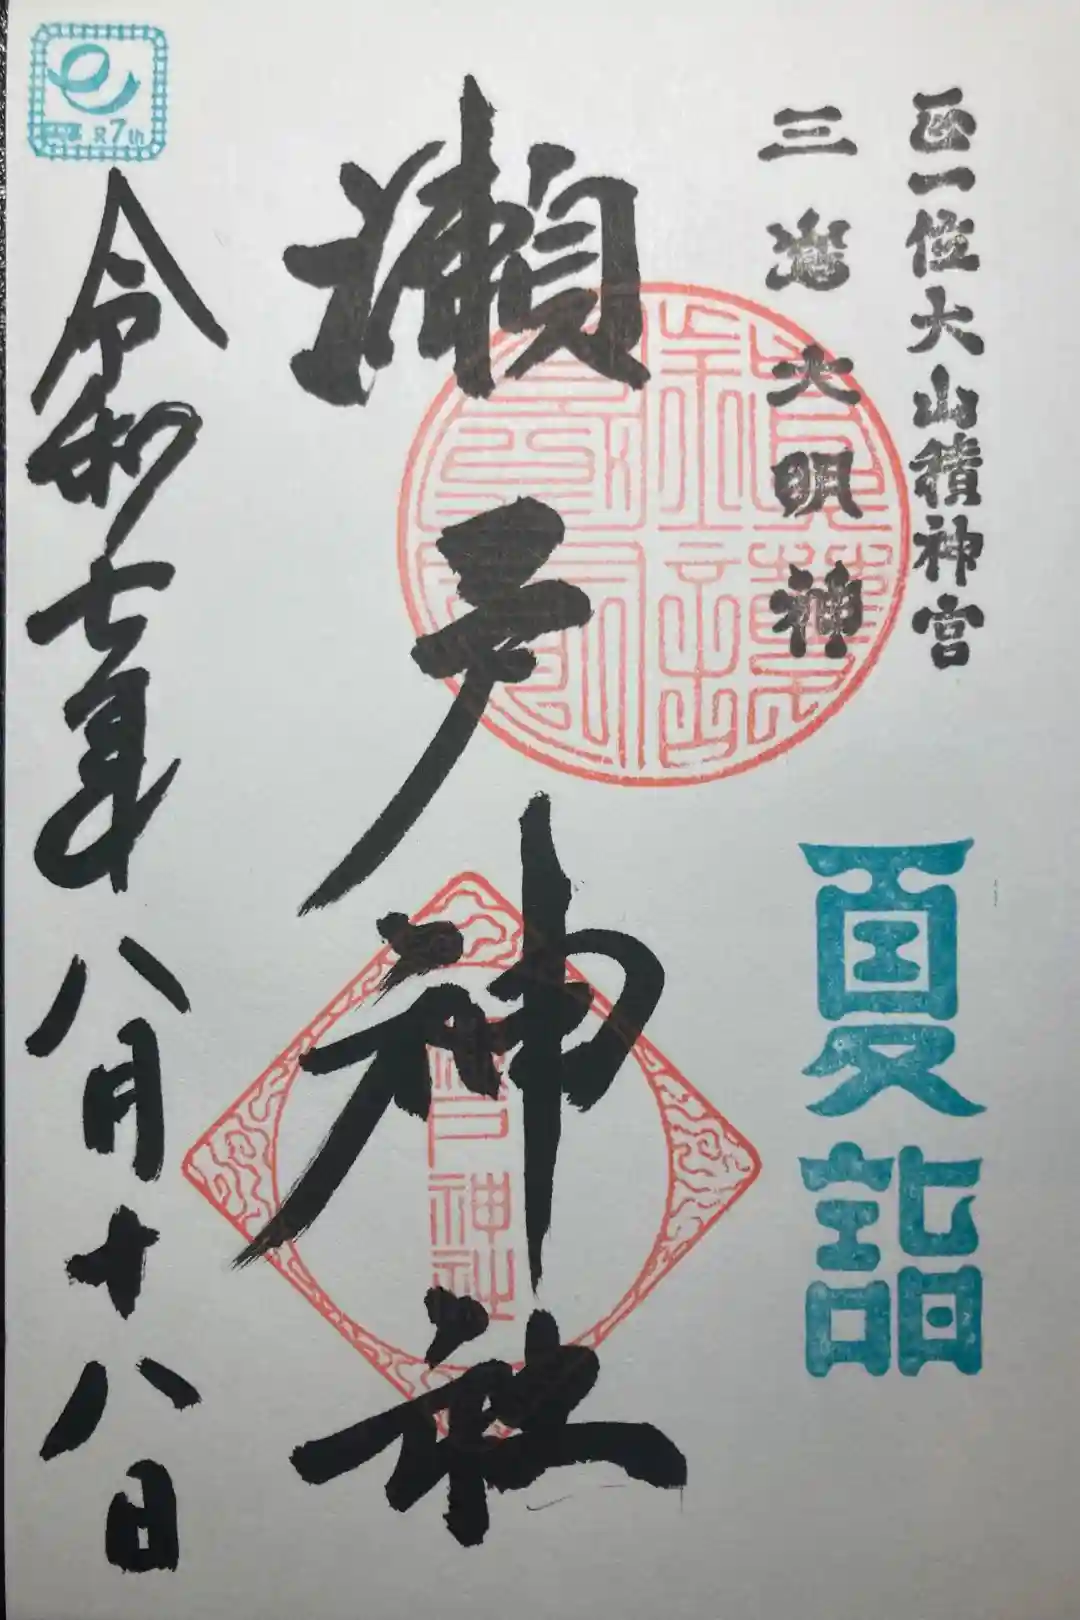 正一位大山積神宮
三嶌大明神
夏詣
瀬戸神社
令和七年八月十八日
7th